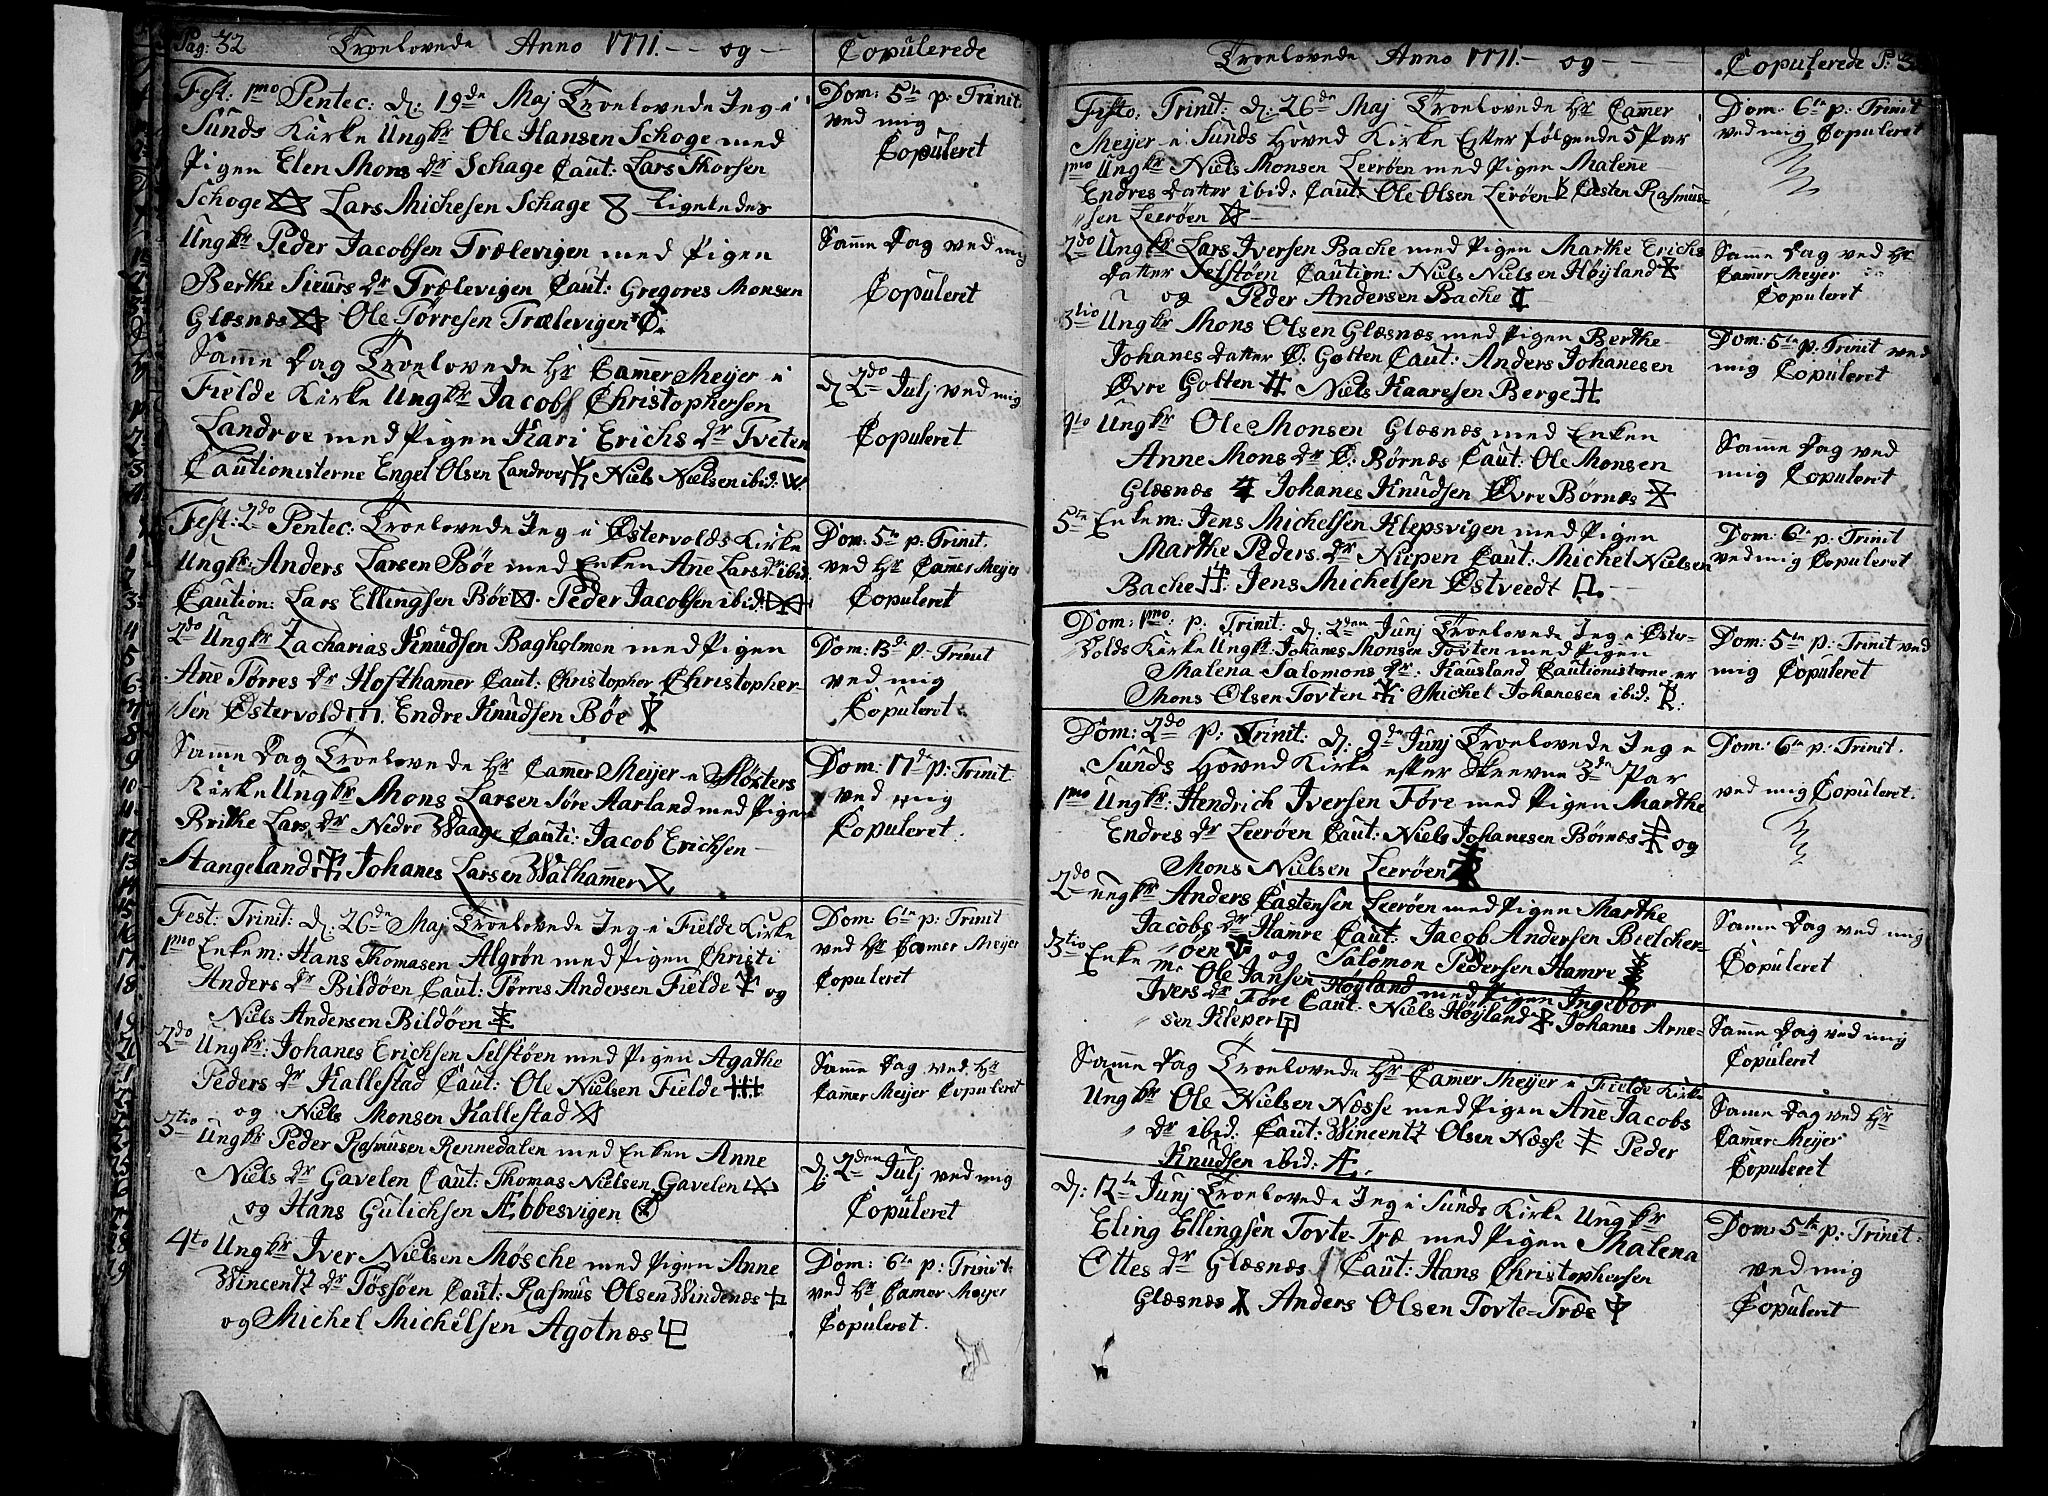 Pag: 32 Troelovede Anno 1771. — og — Copulerede
Fest: 1mo Pentec: d: 19de Maj Troelovede Jeg i
Sunds Kirke Ungkr Ole Hansen Schoge med
Pigen Elen Mons dr Schage Caut: Lars Thorsen
Schoge Lars Michesen Schage Ligeledes
Dom: 5te p: Trinit.
ved mig
Copuleret
Ungkr Peder Jacobsen Trælevigen med Pigen
Berthe Sieurs dr Trælevigen Caut: Gregores Monsen
Glæsnæs Ole Tørresen Trælevigen
Samme Dag ved mig
Copuleret
Samme Dag Troelovede Hr Camer Meijer i
Fielde Kirke Ungkr Jacob Christophersen
Landroe med Pigen Kari Erichs dr Tveten
Cautionisterne Engel Olsen Landroe Niels Nielsen ibid:
d. 2do Julj ved mig
Copuleret
Fest: 2do Pentec: Troelovede Jeg i Østervolds Kirke
Ungkr: Anders Larsen Bøe med Enken Ane Lars dr ibid.
Caution: Lars Ellingsen Bøe Peder Jacobsen ibid:
Dom: 5te p: Trinit.
ved Hr Camer Meijer
Copuleret
2do Ungkr Zacharias Knudsen Bagholmen med Pigen
Ane Tørres dr Hofthamer Caut: Christopher Christopher-
sen Østervold Endre Knudsen Bøe
Dom: 13de p: Trinit
ved mig
Copuleret
Same Dag Troelovede Hr Camer Meijer i Møsters
Kirke Ungkr Mons Larsen Søre Aarland med Pigen
Brithe Lars dr Nedre Waage Caut: Jacob Erichsen
Stangeland Johanes Larsen Walhamer
Dom: 17de p: Trinit.
ved mig
Copuleret.
Fest: Trinit: d. 26de Maj Troelovede Jeg i Fielde Kirke
1mo Enkem: Hans Thomasen Algrøn med Pigen Christi
Anders dr Bildøen Caut: Tørres Andersen Fielde og
Niels Andersen Bildøen
Dom: 6te p: Trinit
ved Hr Camer Meijer
Copuleret
2do Ungkr: Johanes Erichsen Selstøen med Pigen Agathe
Peders dr Kallestad Caut: Ole Nielsen Fielde
og Niels Monsen Kallestad
Samme Dag ved Hr
Camer Meijer Copuleret
3tio Ungkr Peder Rasmusen Rennedalen med Enken Anne
Niels dr Gavelen Caut: Thomas Nielsen Gavelen
og Hans Gulichsen Æbbesvigen
d: 2den Julj ved mig
Copuleret
4to Ungkr Iver Nielsen Møsche med Pigen Anne
Wincentz dr Tøssøen Caut: Rasmus Olsen Windenæs
og Michel Michelsen Agotnæs
Dom: 6te p: Trinit:
ved Hr Camer Meijer
Copuleret.
Troelovede Anno 1771. — og — Copulerede P: 33
Festo: Trinit: d: 26de Maj Troelovede Hr Camer
Meijer i Sunds Hoved Kirke Efter følgende 5 Par
1mo Ungkr Niels Monsen Leerøen med Pigen Malene
Endres datter ibid: Caut: Ole Olsen Lerøen Casten Rasmus-
sen Leerøen
Dom: 6te p: Trinit
ved mig Copuleret
2do Ungkr Lars Iversen Bache med Pigen Marthe Erichs
datter Selstøen Caution: Niels Nielsen Høyland
og Peder Andersen Bache
Samme Dag ved Hr
Camer Meijer
Copuleret
3tio Ungkr Mons Olsen Glæsnæs med Pigen Berthe
Johanes datter Ø. Golten Caut: Anders Johanesen
Øvre Golten Niels Haaresen Berge
Dom: 5te p: Trinit ved
mig Copuleret
4to Ungkr Ole Monsen Glæsnæs med Enken
Anne Mons dr Ø: Børnæs Caut: Ole Monsen
Glæsnæs Johanes Knudsen Øvre Børnæs
Samme Dag ved
mig Copuleret
5te Enkem: Jens Michelsen Klepsvigen med Pigen
Marthe Peders dr Niipen Caut: Michel Nielsen
Bache Jens Michelsen Østveedt
Dom: 6te p: Trinit
ved mig Copuleret
Dom: 1mo: p: Trinit: d: 2den Junj Troelovede Jeg i Øster-
volds Kirke Ungkr Johanes Monsen Tovten med Pigen
Malena Salomons dr: Kausland Cautionisterne er
Mons Olsen Tovten Michel Johanesen ibid:
Dom: 5te p: Trinit ved
mig Copuleret
Dom: 2do p: Trinit: d: 9de Junj Troelovede Jeg i
Sunds Hoved Kirke efter skrevne 3de Par
1mo Ungkr: Hendrich Iversen Føre med Pigen Marthe
Endres dr Leerøen Caut: Niels Johanesen Børnæs og
Mons Nielsen Leerøen
Dom: 6te p: Trinit.
ved mig Copuleret.
2do Ungkr Anders Castensen Leerøen med Pigen Marthe
Jacobs dr Hamre Caut: Jacob Andersen Bielcher-
øen og Salomon Pedersen Hamre
Samme Dag ved mig
Copuleret
3tio Enke m: Ole Jansen Høyland med Pigen Ingebor
Ivers dr Føre Caut: Niels Høyland Johanes Arne-
sen Kleper
Samme Dag ved mig
Copuleret
Samme Dag Troelovede Hr Camer Meijer i Fielde Kirke
Ungkr Ole Nielsen Næsse med Pigen Ane Jacobs
dr ibid: Caut: Wincentz Olsen Næsse Peder
Knudsen ibid: Æ.
Samme Dag ved Hr
Camer Meijer
Copuleret
d: 12te Junj Troelovede Jeg i Sunds Kirke Ungkr
Eling Ellingsen Tovte-Træ med Pigen Malena
Ottes dr Glæsnæs Caut: Hans Christophersen
Glæsnæs Anders Olsen Tovte-Træe
Dom: 5te p: Trinit:
ved mig
Copuleret